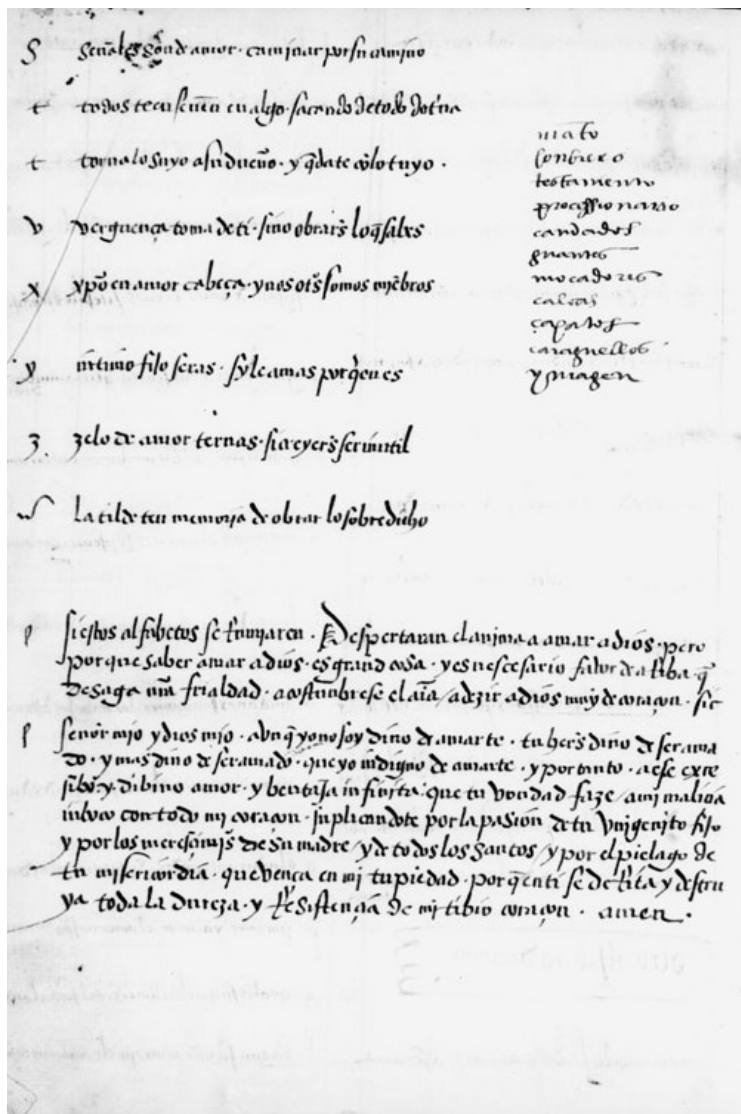 S señales son de amor · caminar por su camino
t todos te enseñen en algo · sacando de todo dotrina
t torna lo suyo a su dueño · y q̄date cō lo tuyo ·
v verguença toma de ti · sino obrares lo q̄ sabes
x xp̄o en amor cabeça · y nosotros somos miēbros
y intimo fijo seras · sy le amas por quien es
z zelo de amor ternas · si
la tilde ten memoria de obrar lo sobredicho
māto
sonbrero
testamento
processionario
candados
guantes
mocadores
calças
çapatos
caraguelles
ymagen
si estos alfabetos se Rumiaren · Despertaran el anima a amar a dios · pero
porque saber amar a dios · es grand cosa · y es nescesario fabor de aRiba · q̄
desaga nr̄a frialdad · acostunbrese el aīa / a dezir a dios muy de coraçon · sic
señor mio y dios mio · avnq̄ yo no soy dino de amarte · tu heres dino de ser ama
do · y mas dino de ser amado · que yo indigno de amarte · y por tanto · a ese exce
sibo · y dibino amor · y bentaja infinita · que tu vondad faze / a mi maliçia
inboco con todo mi coraçon · suplicandote por la pasion de tu vnigenito fijo
y por los de su madre / y de todos los santos / y por el pielago de
tu misericordia · que vença en mi tu piedad · porq̄ en ti se deRita y destru
ya toda la dureza · y Resistençia de mi tibio coraçon · amen ·